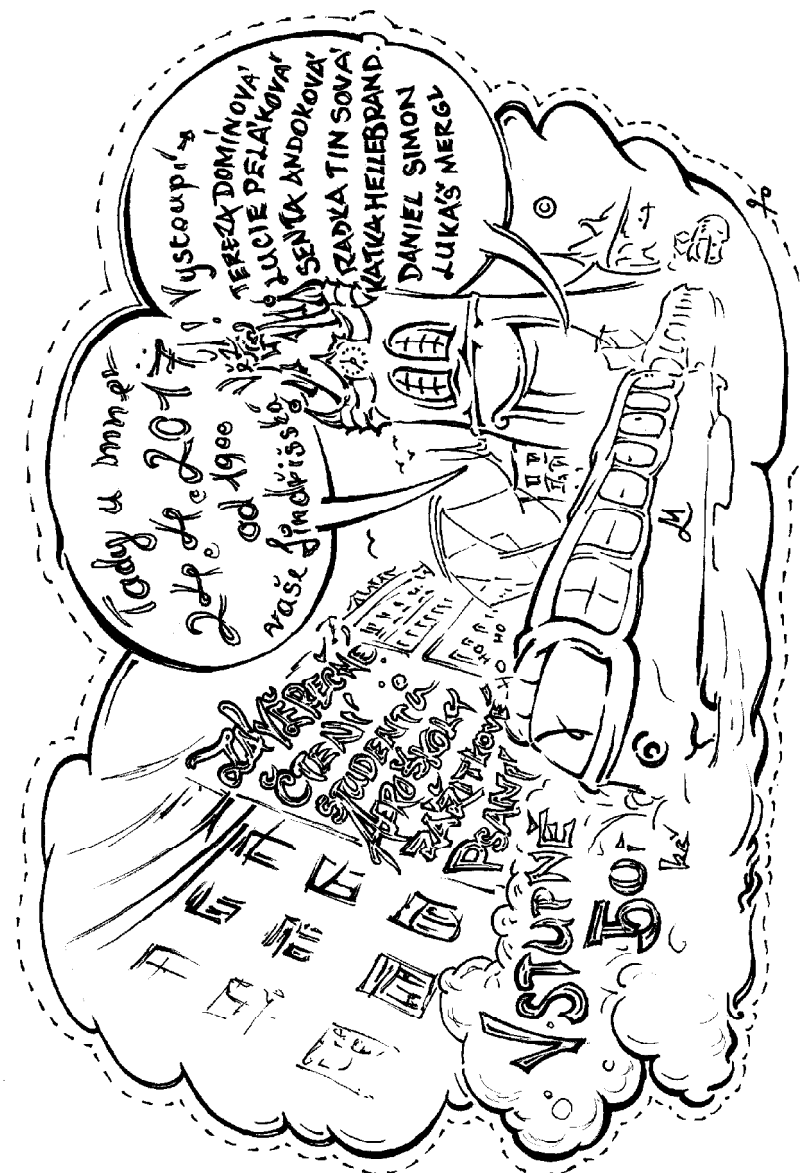 Tady u mne
24.4.2017
od 1900
vaše Jindřišská
Vystoupí
TEREZA DOMÍNOVÁ
LUCIE PELÁKOVÁ
SENTA ANDOKOVÁ
RADKA TINSOVÁ
KATKA HELLEBRAND.
DANIEL SIMON
LUKÁŠ MERGL
ZÁVĚREČNÉ
ČTENÍ
STUDENTŮ
AEROŠKOLY
ZÁŽITKOVÉ
PSANÍ
HO HO HO
VSTUPNÉ
50
kč
©